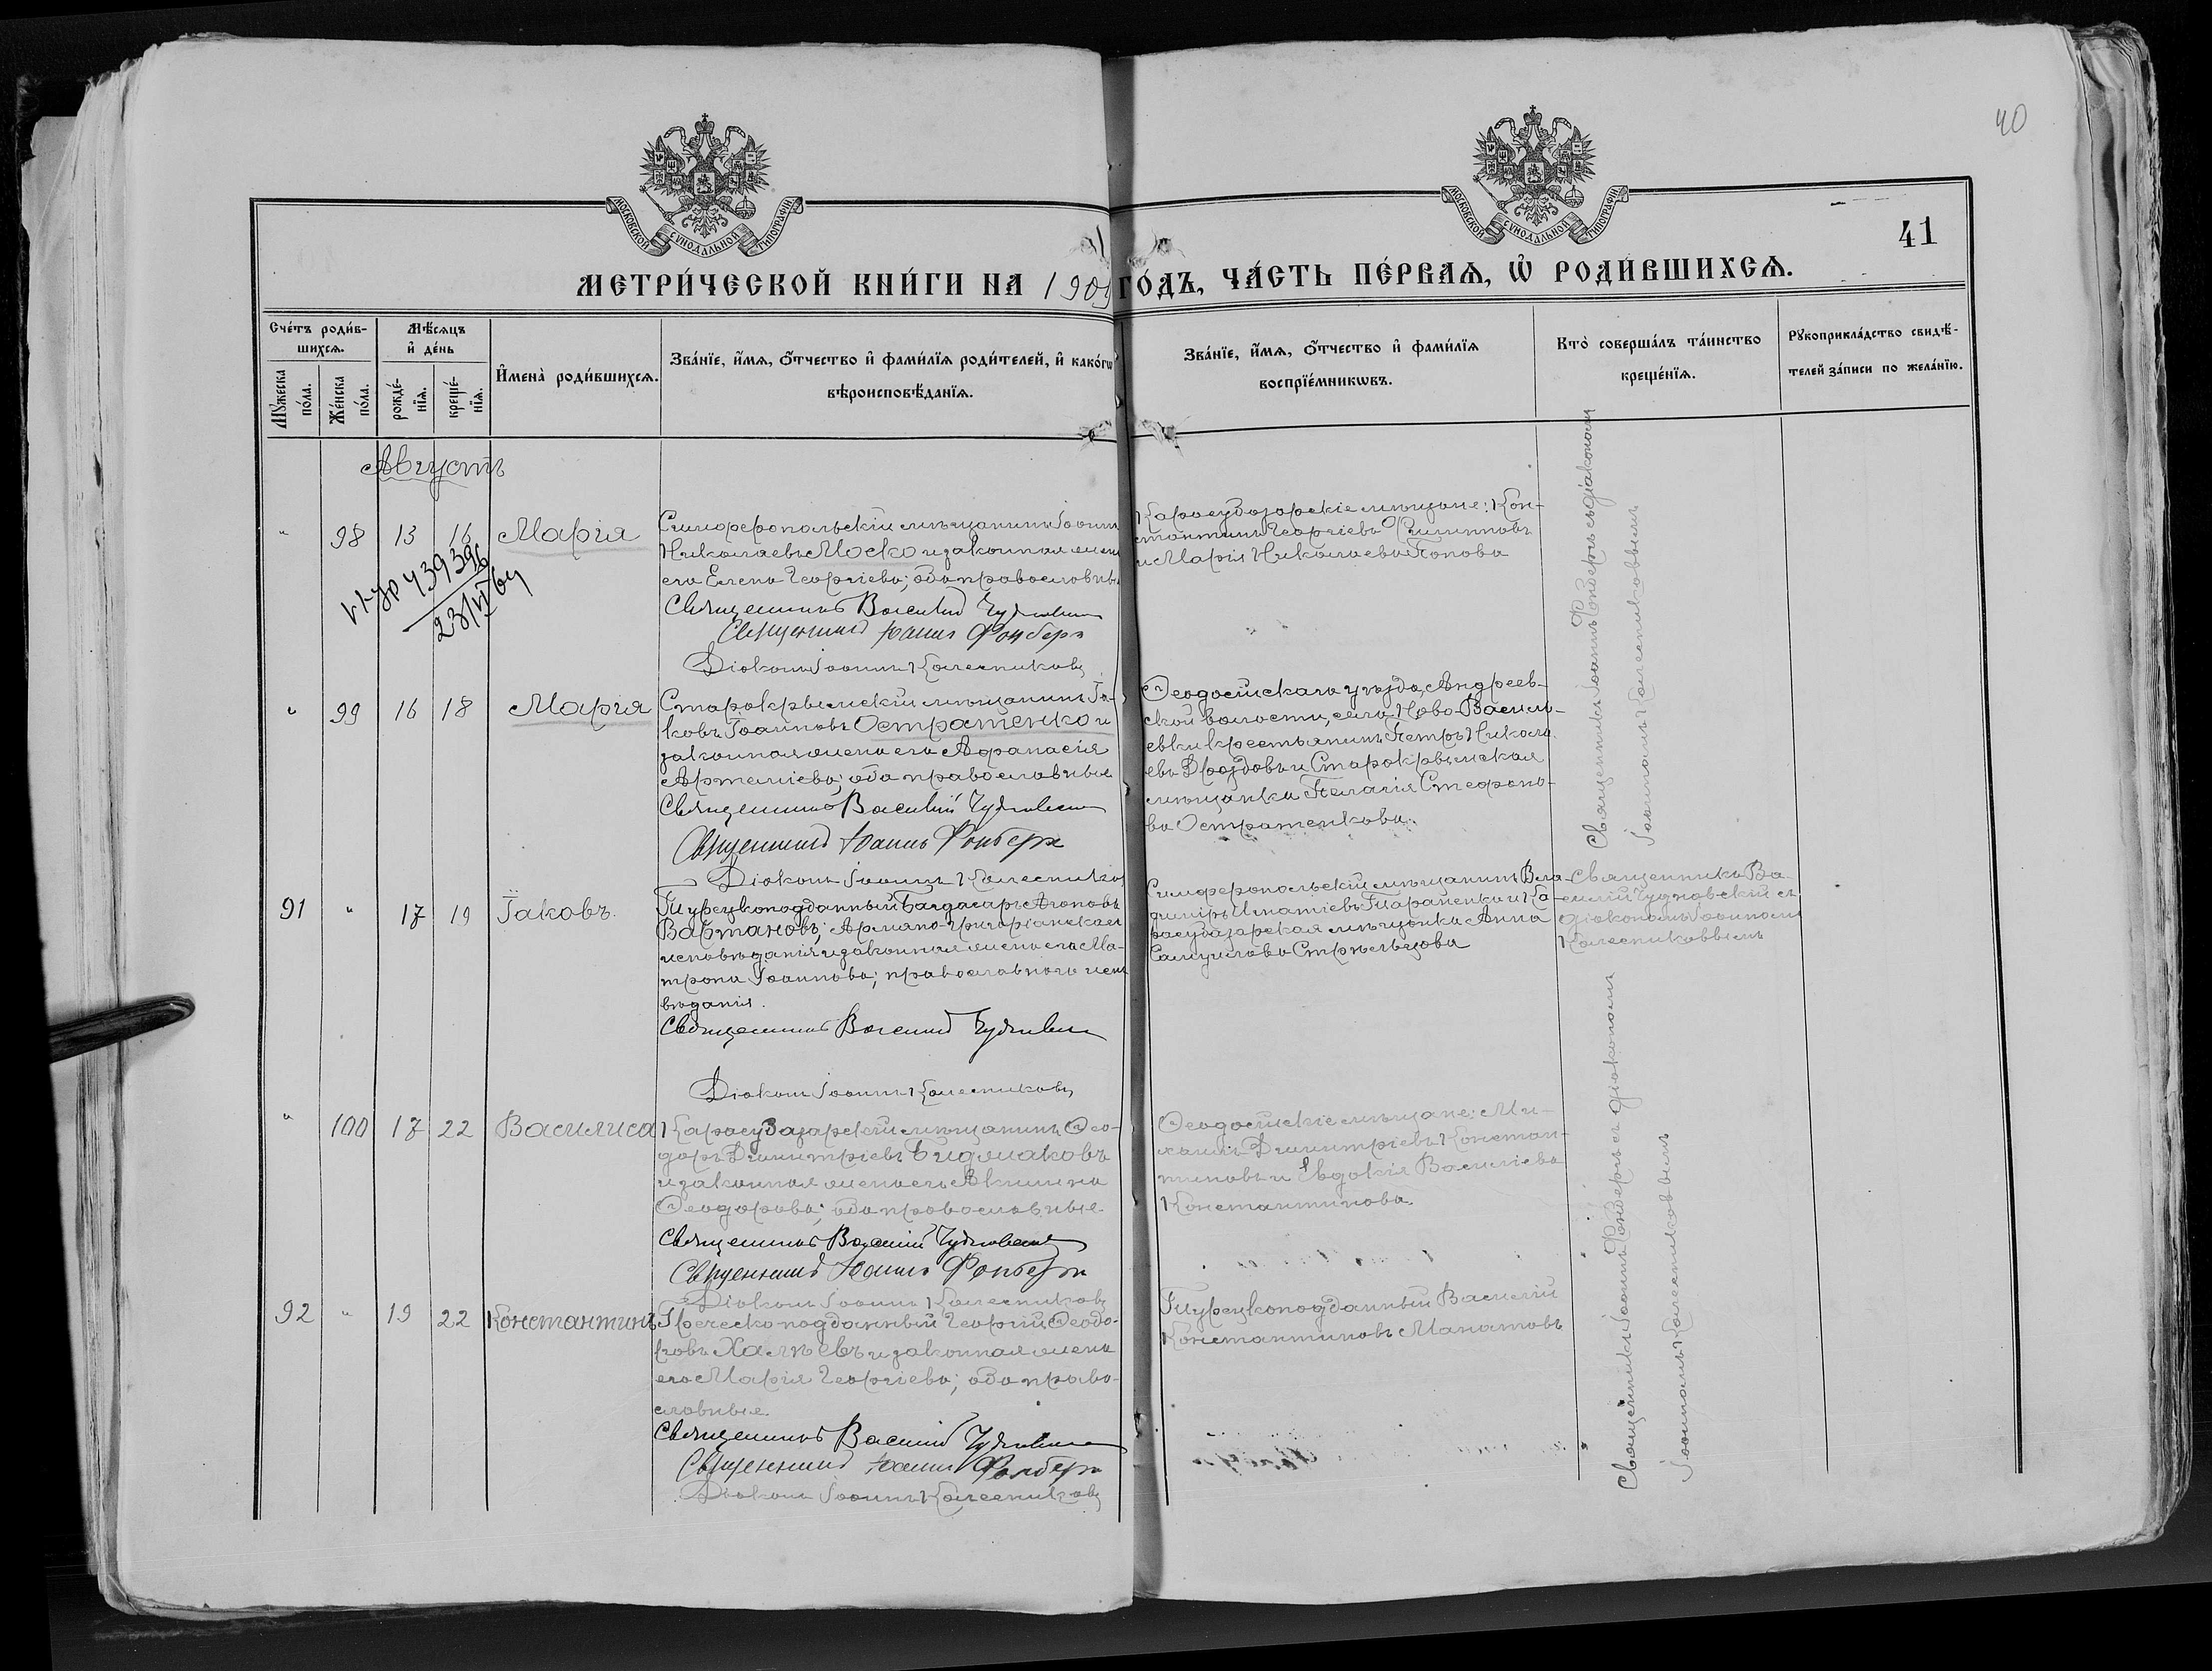 40
МОСКОВСКОЙ СѴНОДАЛЬНОЙ ТИПОГРАФІИ
МОСКОВСКОЙ СѴНОДАЛЬНОЙ ТИПОГРАФІИ
41
МЕТРИ́ЧЕСКОЙ КНИ́ГИ НА 1909 ГО́ДЪ, ЧА́СТЬ ПЕ́РВАѦ, Ѡ҆ РОДИ́ВШИХСѦ.
Сче́тъ роди́в-
шихсѧ.
Мꙋ́жеска по́ла.
Же́нска по́ла.
Мѣ́сѧцъ
и҆ де́нь
рожде́-
нїѧ.
креще́-
нїѧ.
И҆мена̀ роди́вшихсѧ.
Зва́нїе, и҆́мѧ, ѻ҆́тчество и҆ фами́лїѧ роди́телей, и҆ како́гѡ
вѣроисповѣ́данїѧ.
Зва́нїе, и҆́мѧ, ѻ҆́тчество и҆ фами́лїѧ
воспрїе́мникѡвъ.
Кто̀ соверша́лъ та́инство
креще́нїѧ.
Рꙋкоприкла́дство свидѣ́-
телей за́писи по жела́нїю.
Августъ
" 98 13 16 Марія
Симферопольскій мѣщанинъ Іоаннъ
Николаевъ Моско и законная жена
его Елена Георгіева; оба православные
Священникъ Василій Чудновскій
Священникъ Іоаннъ Фонберг
Діаконъ Іоаннъ Колесниковъ
Карасубазарскіе мѣщане: Кон-
стантинъ Георгіевъ Филипповъ
и Марія Николаева Попова
439396
Священникъ Іоаннъ Фонбергъ съ діакономъ
Іоанномъ Колесниковымъ
" 99 16 18 Марія
Старокрымскій мѣщанинъ Іа-
ковъ Іоанновъ Остратенко и
законная жена его Афанасія
Артеміева; оба православные
Священникъ Василій Чудновскій
Священникъ Іоаннъ Фонберг
Діаконъ Іоаннъ Колесниковъ
Ѳеодосійскаго уѣзда, Андреев-
ской волости, села Ново-Василь-
евки крестьянинъ Петръ Никола-
евъ Дроздовъ и Старокрымская
мѣщанка Пелагія Стефано-
ва Остратенкова.
91 " 17 19 Іаковъ.
Турецкоподданный Багдасаръ Агоповъ
Вартановъ; Армяно-григоріанскаго
исповѣданія и законная жена его Ма-
трона Іоаннова; православнаго испо
вѣданія.
Священникъ Василій Чудновскій
Діаконъ Іоаннъ Колесниковъ
Симферопольскій мѣщанинъ Вла-
диміръ Игнатіевъ Тараненко и Ка-
расубазарская мѣщанка Анна
Самуилова Стрѣльцова
Священникъ Ва-
силій Чудновскій съ
діакономъ Іоанномъ
Колесниковымъ
" 100 17 22 Василиса
Карасубазарскій мѣщанинъ Ѳео-
доръ Димитріевъ Бидмаковъ
и законная жена его Акилина
Ѳеодорова; оба православные
Священникъ Василій Чудновскій
Священникъ Іоаннъ Фонберг
Діаконъ Іоаннъ Колесниковъ
Ѳеодосійскіе мѣщане: Ми-
хаилъ Димитріевъ Констан-
тиновъ и Евдокія Василіева
Константинова.
Священникъ Іоаннъ Фонбергъ съ діакономъ
Іоанномъ Колесниковымъ
92 " 19 22 Константинъ
Греческоподданный Георгій Ѳеодо-
ровъ Халпевъ и законная жена
его Марія Георгіева; оба право-
славные.
Священникъ Василій Чудновскій
Священникъ Іоаннъ Фонберг
Діаконъ Іоаннъ Колесниковъ
Турецкоподданный Василій
Константиновъ Манатовъ